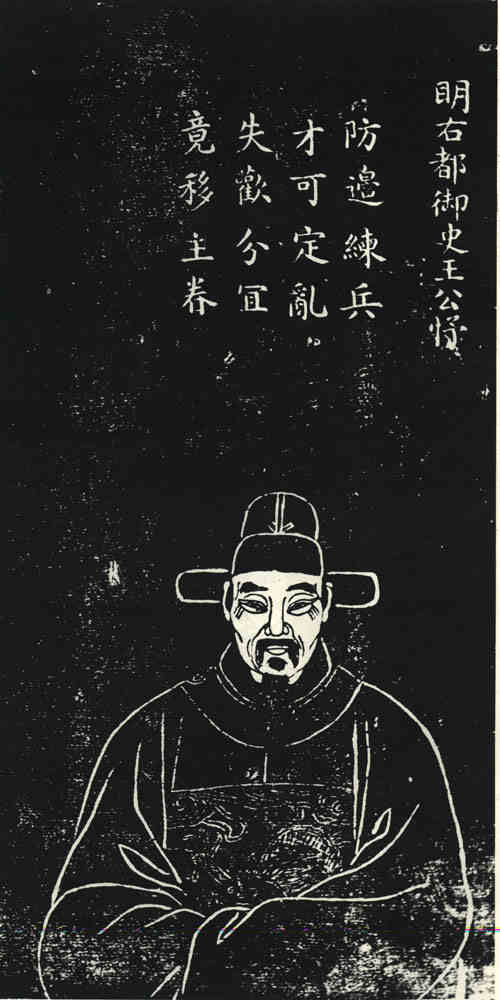 明右都御史王公忬
防邊練兵
才可定亂
失歡分宜
竟移主眷